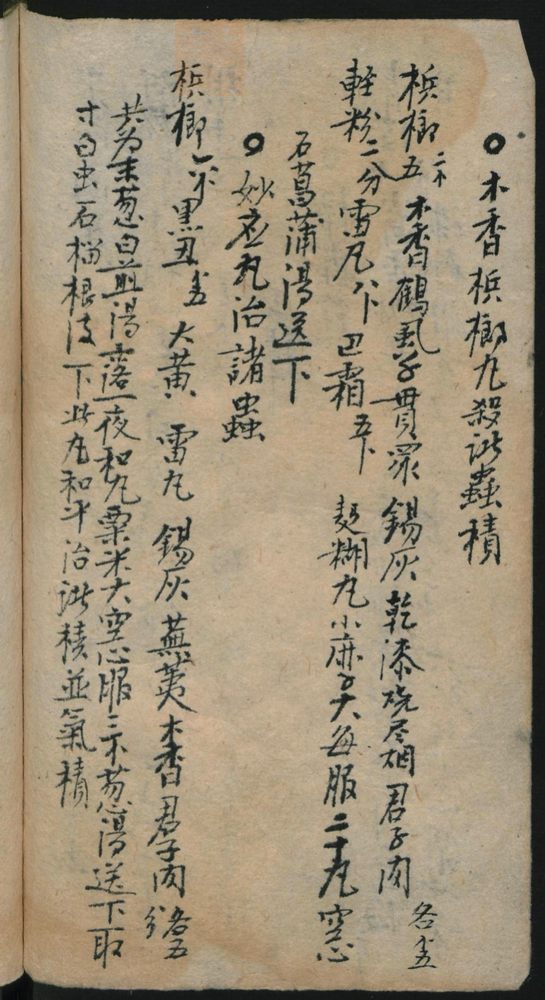 ○木香槟榔丸殺諸蟲積
槟榔五 木香 鶴虱子 貫眾 錫灰 乾漆燒尽烟 君子肉 各
輕粉二分 雷丸 巴霜 麪糊丸小麻子大每服二十丸空心
石菖蒲湯送下
○妙应丸治諸蟲
槟榔 黑丑 大黄 雷丸 錫灰 蕪荑 木香 君子肉 各五分
共为末葱白煎湯露一夜和丸粟米大空心服三 葱湯送下取
寸白虫石榴根皮下此丸和平治諸積並氣積